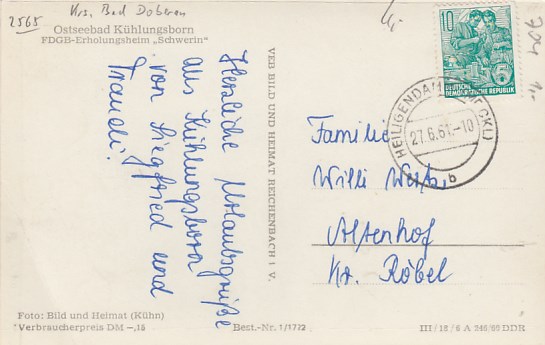 2565
Krs. Bad Doberan
Ostseebad Kühlungsborn
FDGB-Erholungsheim „Schwerin"
Herzliche Urlaubsgrüße
aus Kühlungsborn
von Siegfried und
Traudi.
VEB BILD UND HEIMAT REICHENBACH I V.
10
DEUTSCHE
DEMOKRATISCHE REPUBLIK
5
HEILIGENDAMM
27.6.61.-10
b
704 1.-
Familie
Willi
Altenhof
Kr. Röbel
Foto: Bild und Heimat (Kühn)
Verbraucherpreis DM -,15
Best.-Nr. 1/1722
III/18/6 A 246/60 DDR